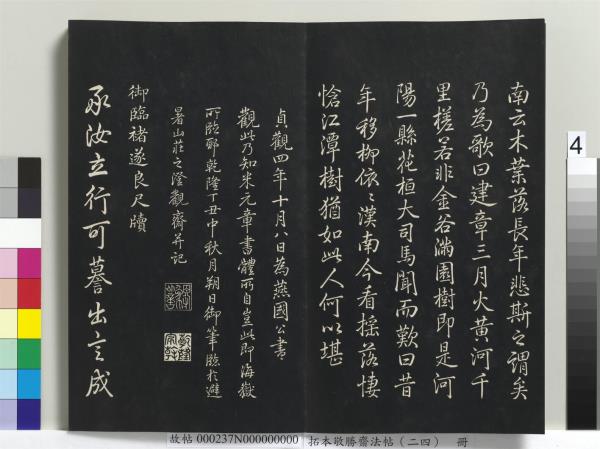 南云木葉落長年悲斯之謂矣
乃為歌曰建章三月火黃河千
里槎若非金谷滿園樹即是河
陽一縣花桓大司馬聞而歎曰昔
年移柳依〻漢南今看搖落悽
愴江潭樹猶如此人何以堪
貞觀四年十月八日為燕國公書
觀此乃知米元章書體所自豈此即海嶽
所臨耶乾隆丁丑中秋月朔日御筆臨於避
暑山莊之澄觀齋并記
御臨褚遂良尺牘
承汝立行可暮出之成
4
故帖 000237N000000000
拓本敬勝齋法帖（二四） 冊